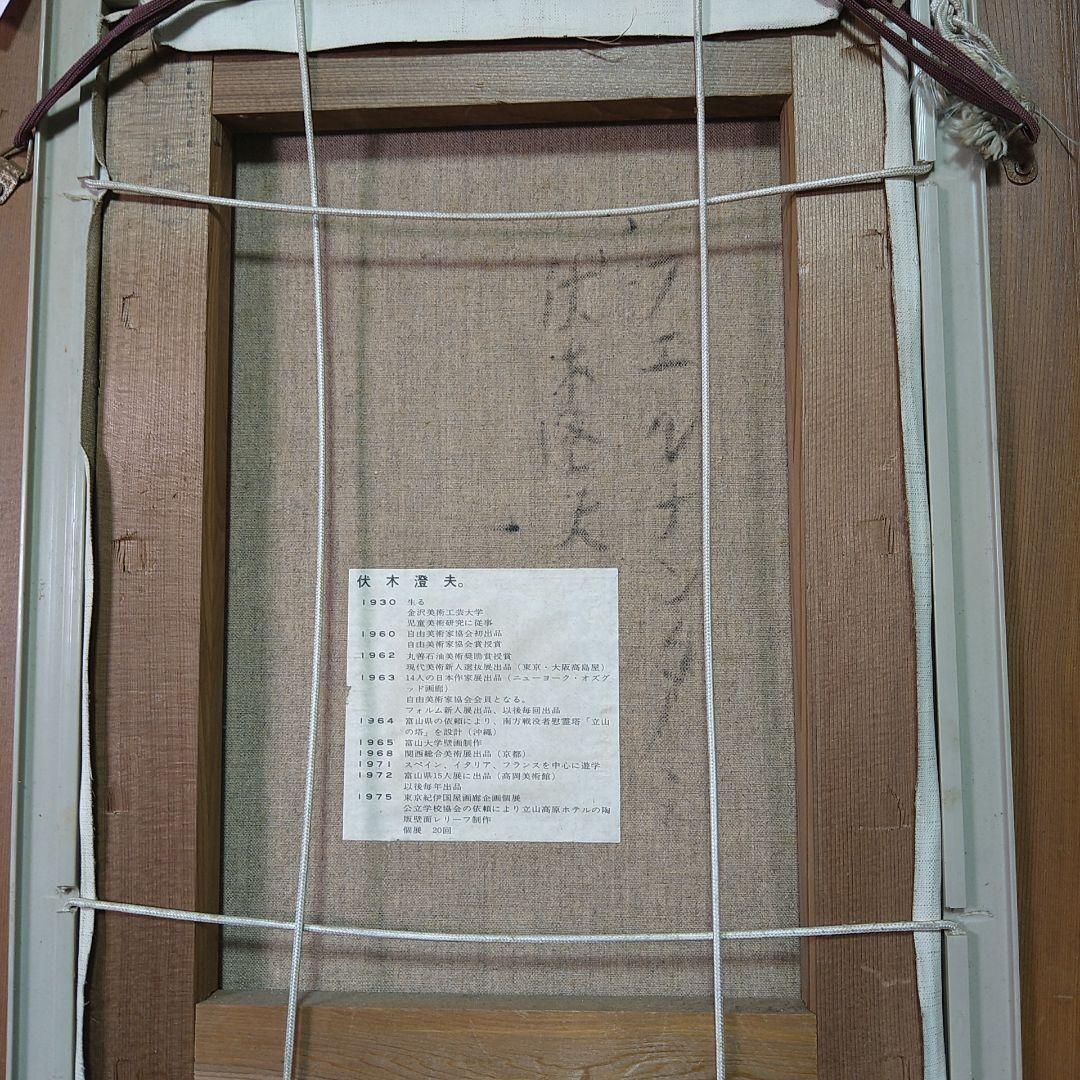 フェルナンデス
伏木澄夫
伏木澄夫。
1930 生る
金沢美術工芸大学
児童美術研究に従事
1960 自由美術家協会初出品
自由美術家協会賞授賞
1962 丸善石油美術奨励賞授賞
現代美術新人選抜展出品(東京・大阪高島屋)
1963 14人の日本作家展出品(ニューヨーク・オズグ
ッド画廊)
自由美術家協会会員となる。
フォルム新人展出品、以後毎回出品
1964 富山県の依頼により、南方戦没者慰霊塔「立山
の塔」を設計(沖縄)
1965 富山大学壁画制作
1968 関西総合美術展出品(京都)
1971 スペイン、イタリア、フランスを中心に遊学
1972 富山県15人展に出品(高岡美術館)
以後毎年出品
1975 東京紀伊国屋画廊企画個展
公立学校協会の依頼により立山高原ホテルの陶
版壁面レリーフ制作
個展 20回